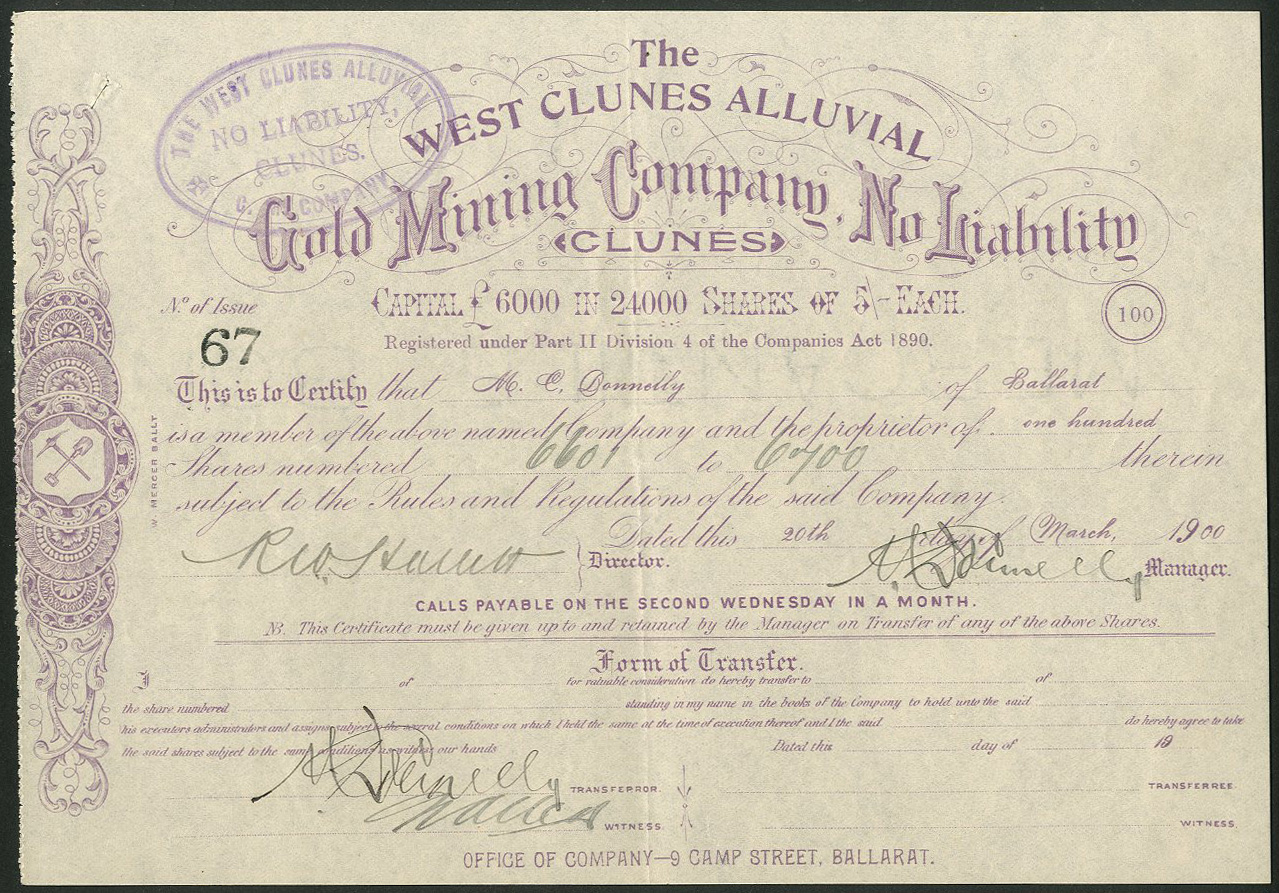 The
WEST CLUNES ALLUVIAL
Gold Mining Company, No Liability
CLUNES
THE WEST CLUNES ALLUVIAL
NO LIABILITY,
CLUNES.
COMPANY
CAPITAL £6000 IN 24000 SHARES OF 5/- EACH.
100
No. of Issue
67
Registered under Part II Division 4 of the Companies Act 1890.
This is to Certify that M. C. Donnelly of Ballarat
is a member of the above named Company and the proprietor of one hundred
Shares numbered 6601 to 6700 therein
subject to the Rules and Regulations of the said Company.
Dated this 20th day of March, 1900
Director. Manager.
W. MERCER BALLT
CALLS PAYABLE ON THE SECOND WEDNESDAY IN A MONTH.
NB. This Certificate must be given up to and retained by the Manager on Transfer of any of the above Shares.
Form of Transfer.
I of for valuable consideration do hereby transfer to of
the share numbered standing in my name in the books of the Company to hold unto the said
his executors administrators and assigns subject to the several conditions on which I held the same at the time of execution thereof and I the said do hereby agree to take
the said shares subject to the same conditions as witness our hands Dated this day of 19
TRANSFERROR. TRANSFERREE.
WITNESS. WITNESS.
OFFICE OF COMPANY—9 CAMP STREET, BALLARAT.